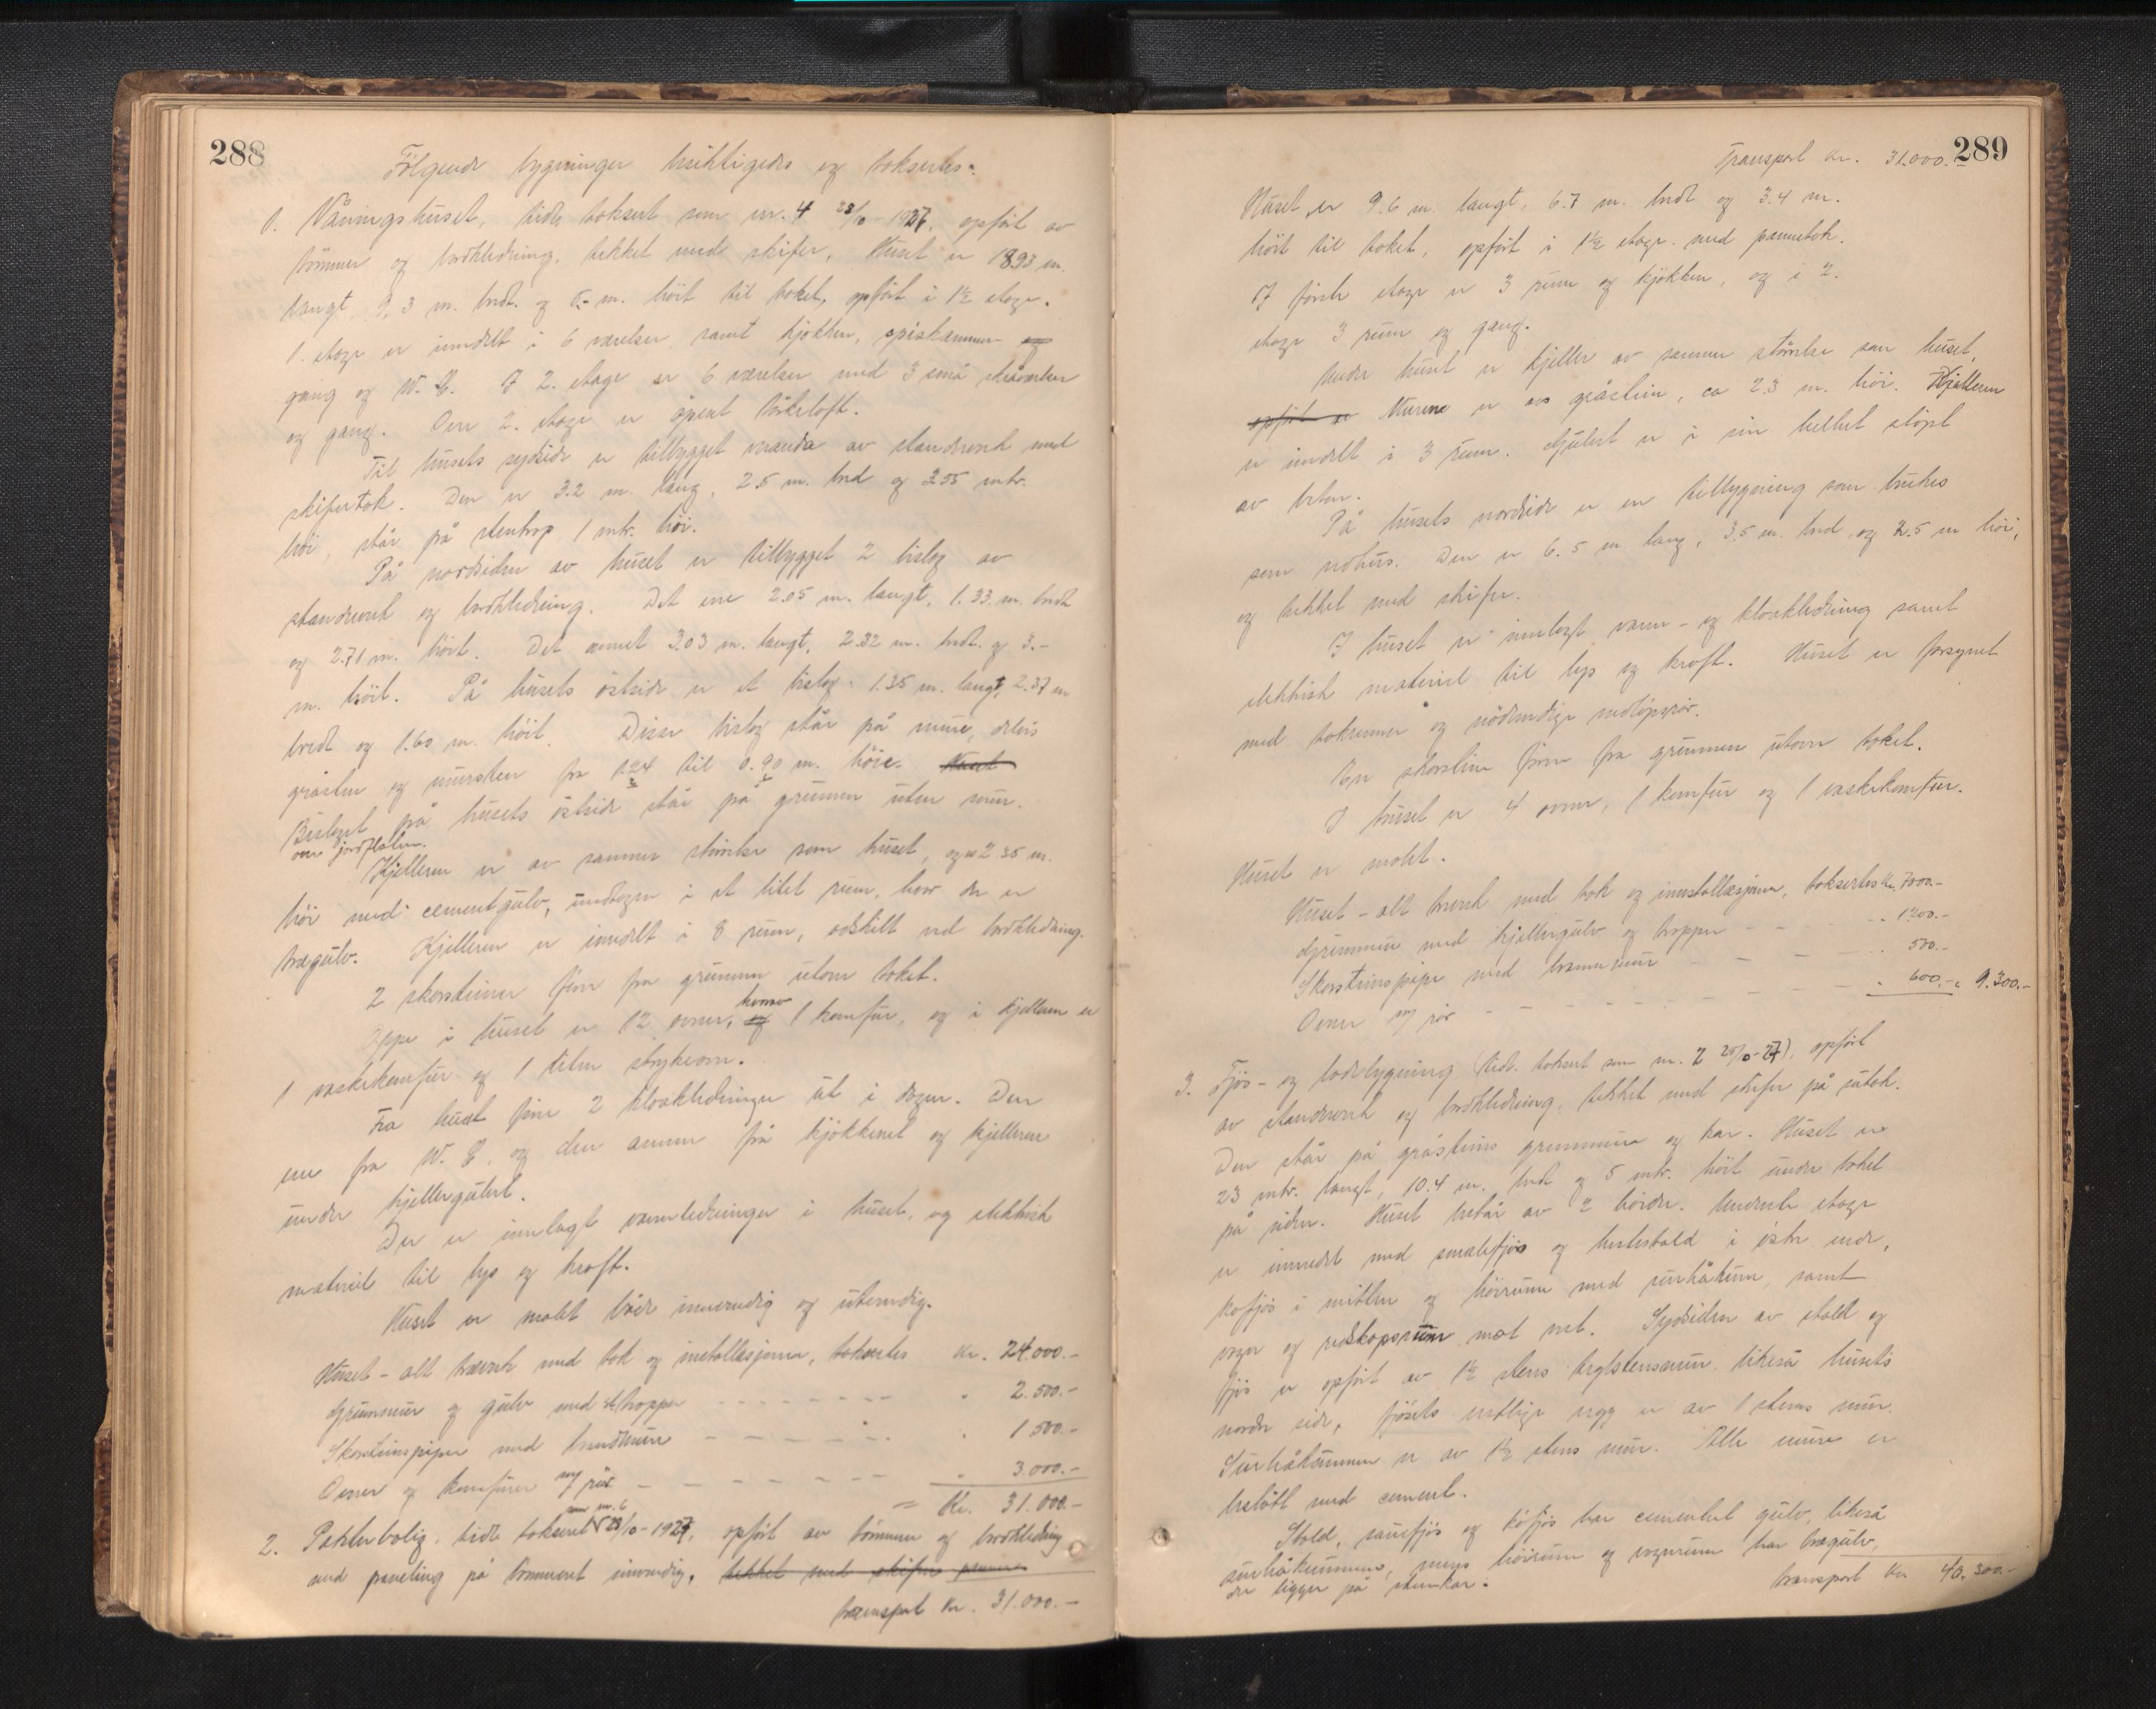 288
Følgende bygninger besiktigedes og takseertes:
1. Våningshuset, tidl. taksert som nr. 4 28/10-1927, opført av
tømmer og bordklædning, tekket med skifer. Huset er 18.93 m.
langt, 9.3 m. bredt og 5.- m. høit til taket, opført i 1½ etage.
1. etage er inndelt i 6 værelser samt kjøkken, spiskammer og
gang og W.C. I 2. etage er 6 værelser med 3 små skråværelser
og gang. Over 2. etage er åpent tørkeloft.
Til husets sydside er tilbygget veranda av standverk med
skifertak. Den er 3.2 m. lang, 2.5 m. bred og 2.55 mtr.
høi, står på stentrap 1 mtr. høi.
På nordsiden av huset er tilbygget 2 bislag av
standverk og bordklædning. Det ene 2.05 m. langt, 1.33 m. bredt
og 2.71 m. høit. Det annet 3.03 m. langt, 2.32 m. bredt og 3.-
m. høit. På husets østside er et bislag 1.35 m. langt, 2.37 m
bredt og 1.60 m. høit. Disse bislag står på mure, delvis
gråsten og mursten fra 1.24 til 0.90 m. høie. Huset
Bislaget på husets østside står på grunnen uten mur.
over jordflaten.
Kjelleren er av samme størrelse som huset, og er 2.35 m.
høi med cementgulv, undtagen i et litet rum, hvor der er
trægulv. Kjelleren er inndelt i 8 rum, adskilt ved bordkledning.
2 skorsteiner fører fra grunnen utover taket.
Oppe i huset er 12 ovner, og 1 komfur, og i kjelleren er
1 vaskekomfur og 1 liten strykeovn.
Fra huset fører 2 kloakledninger ut i dogen. Den
ene fra W.C. og den annen frå kjøkkenet og kjelleren
under kjellergulvet.
Der er innlagt vannledninger i huset, og elektrisk
materiel til lys og kraft.
Huset er malt både innvendig og utvendig.
Huset - alt træverk med tak og installasjoner, takseertes Kr. 24.000.-
Grunnmur og gulv med trapper - - - - - - " 2.500.-
Skorsteinspiper med brandmure - - - - - - " 1 500.-
Ovner og komfurer m/ rør - - - - - - - " 3.000.-
= Kr. 31.000.-
som nr. 6
2. Pakterbolig, tidl. taksert 28/10-1927, opført av tømmer og bordkledning
med paneling på tømmeret innvendig, tekket med skifer panner
transport Kr. 31.000.-
289
Transport Kr. 31.000.-
Huset er 9.6 m. langt, 6.7 m. bredt og 3.4 m.
høit til taket, opført i 1½ etage med pannetak.
I første etage er 3 rum og kjøkken, og i 2.
etage 3 rum og gang.
Under huset er kjeller av samme størrelse som huset,
opført er Murene er av gråstein, ca 2.3 m. høi. Kjelleren
er inndelt i 3 rum. Gulvet er i sin helhet støpt
av beton.
På husets nordside er en tilbygning som brukes
som vedhus. Den er 6.5 m lang, 3.5 m. bred og 2.5 m høi,
og tekket med skifer.
I huset er innlagt vann- og kloakledning samt
elektrisk materiel til lys og kraft. Huset er forsynet
med takrenner og nødvendige nedløpsrør.
En skorstein fører fra grunnen utover taket.
I huset er 4 ovner, 1 komfur og 1 vaskekomfur.
Huset er malt.
Huset - alt træverk med tak og innstallasjoner, takseertes Kr. 7000.-
Grunnmur med kjellergulv og trapper - - - - - " 1200.-
Skorsteinspipe med brannmur - - - - - " 500.-
Ovner m/ rør - - - - - - - - - " 600.- " 9.300.-
3. Fjøs- og ladebygning (tidl. taksert som nr. 2 28/10-27), opført
av standverk og bordkledning, tekket med skifer på sutak.
Den står på gråsteins grunnmure og kar. Huset er
23 mtr. langt, 10.4 m. bredt og 5 mtr. høit under taket
på siden. Huset består av 2 høider. Underste etage
er innredet med smalefjøs og hestestald i østre ende,
kofjøs i midten og høirum med surhåkum, samt
vogn og redskapsrum mot vest. Sydsiden av stald og
fjøs er opført av 1½ stens teglstensmur likeså husets
nordre side, fjøsets vestlige vegg er av 1 stens mur.
Surhåkummen er av 1½ stens mur. Alle mure er
beslått med cement.
Stald, sauefjøs og kofjøs har cementert gulv, likeså
surhåkummen, mens høirum og vognrum har trægulv,
der ligger på stenkar.
transport Kr 40.300.-